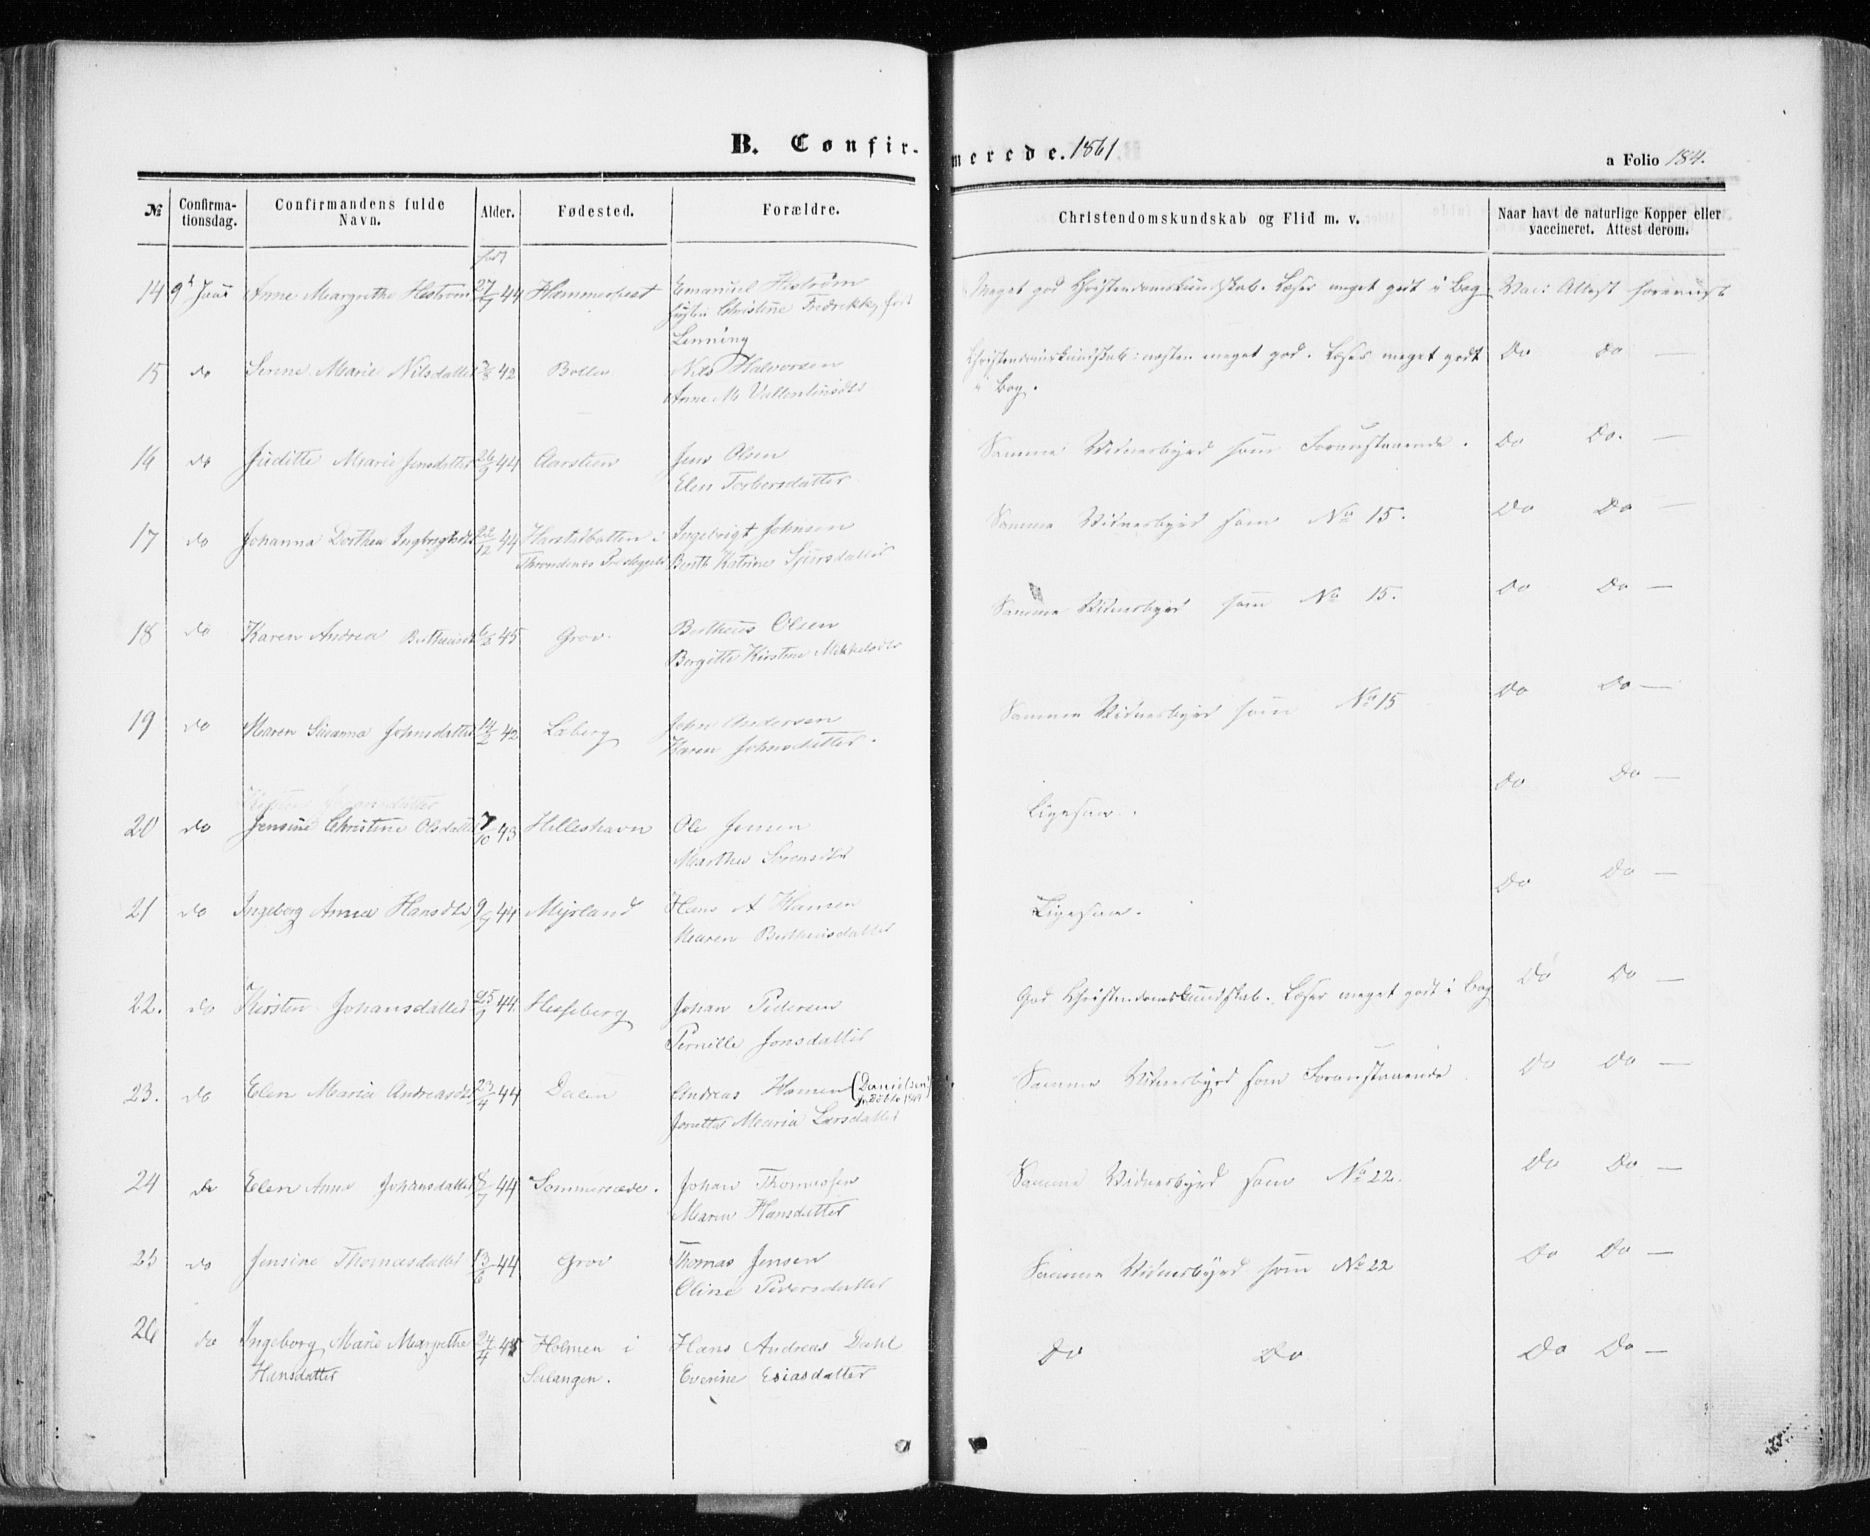 B. Confirmerede. 1861.
a Folio 184.
№ Confirmationsdag. Confirmandens fulde Navn. Alder. Fødested. Forældre. Christendomskundskab og Flid m. v. Naar havt de naturlige Kopper eller vaccineret. Attest derom.
født
14 9d Juni Anne Margrethe Hestrøm 27/7 44 Hammerfest Emanuel Hestrøm Meget god Christendomskundskab. Læser meget godt i Bog Vac: Attest foreviist
Christine Fredrikke
Lenning
15 do Serine Marie Nilsdatter 3/8 42 Bolle Nils Halvorsen Christendomskundskab: næsten meget god. Læser meget godt Do Do —
Anne M Vallentinsdtr i Bog.
16 do Juditte Marie Jensdatter 26/9 44 Aarsteen Jens Olsen Samme Vidnesbyrd som Foranstaaende. Do Do. —
Elen Torbersdatter
17 do Johanna Dorthea Ingbrigtsdtr 22/12 44 Harstadbotten i Ingebrigt Johnsen Samme Vidnesbyrd som No 15. Do Do —
Throndenes Præstegjeld Berith Katrine Sjursdatter
18 do Karen Andrea Bertheusdtr 6/3 45 Grov Bertheus Olsen Samme Vidnesbyrd som No 15. Do Do —
Bergitte Kirstine Mikkelsdtr
19 do Maren Susanna Johnsdatter 14/2 42 Laberg John Andersen Samme Vidnesbyrd som No 15 Do Do —
Karen Johnsdatter.
20 do Jensine Christine Olsdatter 7/10 43 Hilleshavn Ole Jensen Ligesaa. Do Do —
Marthe Sørensdtr
21 do Ingeborg Anna Hansdtr 9/7 44 Myrland Hans A Hansen Ligesaa. Do Do —
Maren Bertheusdatter
22. do Kirsten Johansdatter 25/9 44. Hesseberg Johan Pedersen God Christendomskundskab. Læser meget godt i Bog Do Do —
Pernille Jonsdatter
23. do Elen Maria Andreasdtr 23/4 44 Dalen Andreas Hansen (Danielsen Samme Vidnesbyrd som Foranstaaende Do Do —
Jonetta Maria Larsdatter
24 do Elen Anna Johansdatter 2/7 44 Sommersæde. Johan Thomassen Samme Vidnesbyrd som No 22. Do Do —
Maren Hansdatter
25 do Jensine Thomasdatter 13/6 44 Grov Thomas Jensen Samme Vidnesbyrd som No 22 Do Do —
Oline Pedersdatter
26 do Ingeborg Marie Margrethe 24/4 45 Holmen i Hans Andreas Dahl Do Do Do Do —
Hansdatter Salangen. Everine Esiasdatter